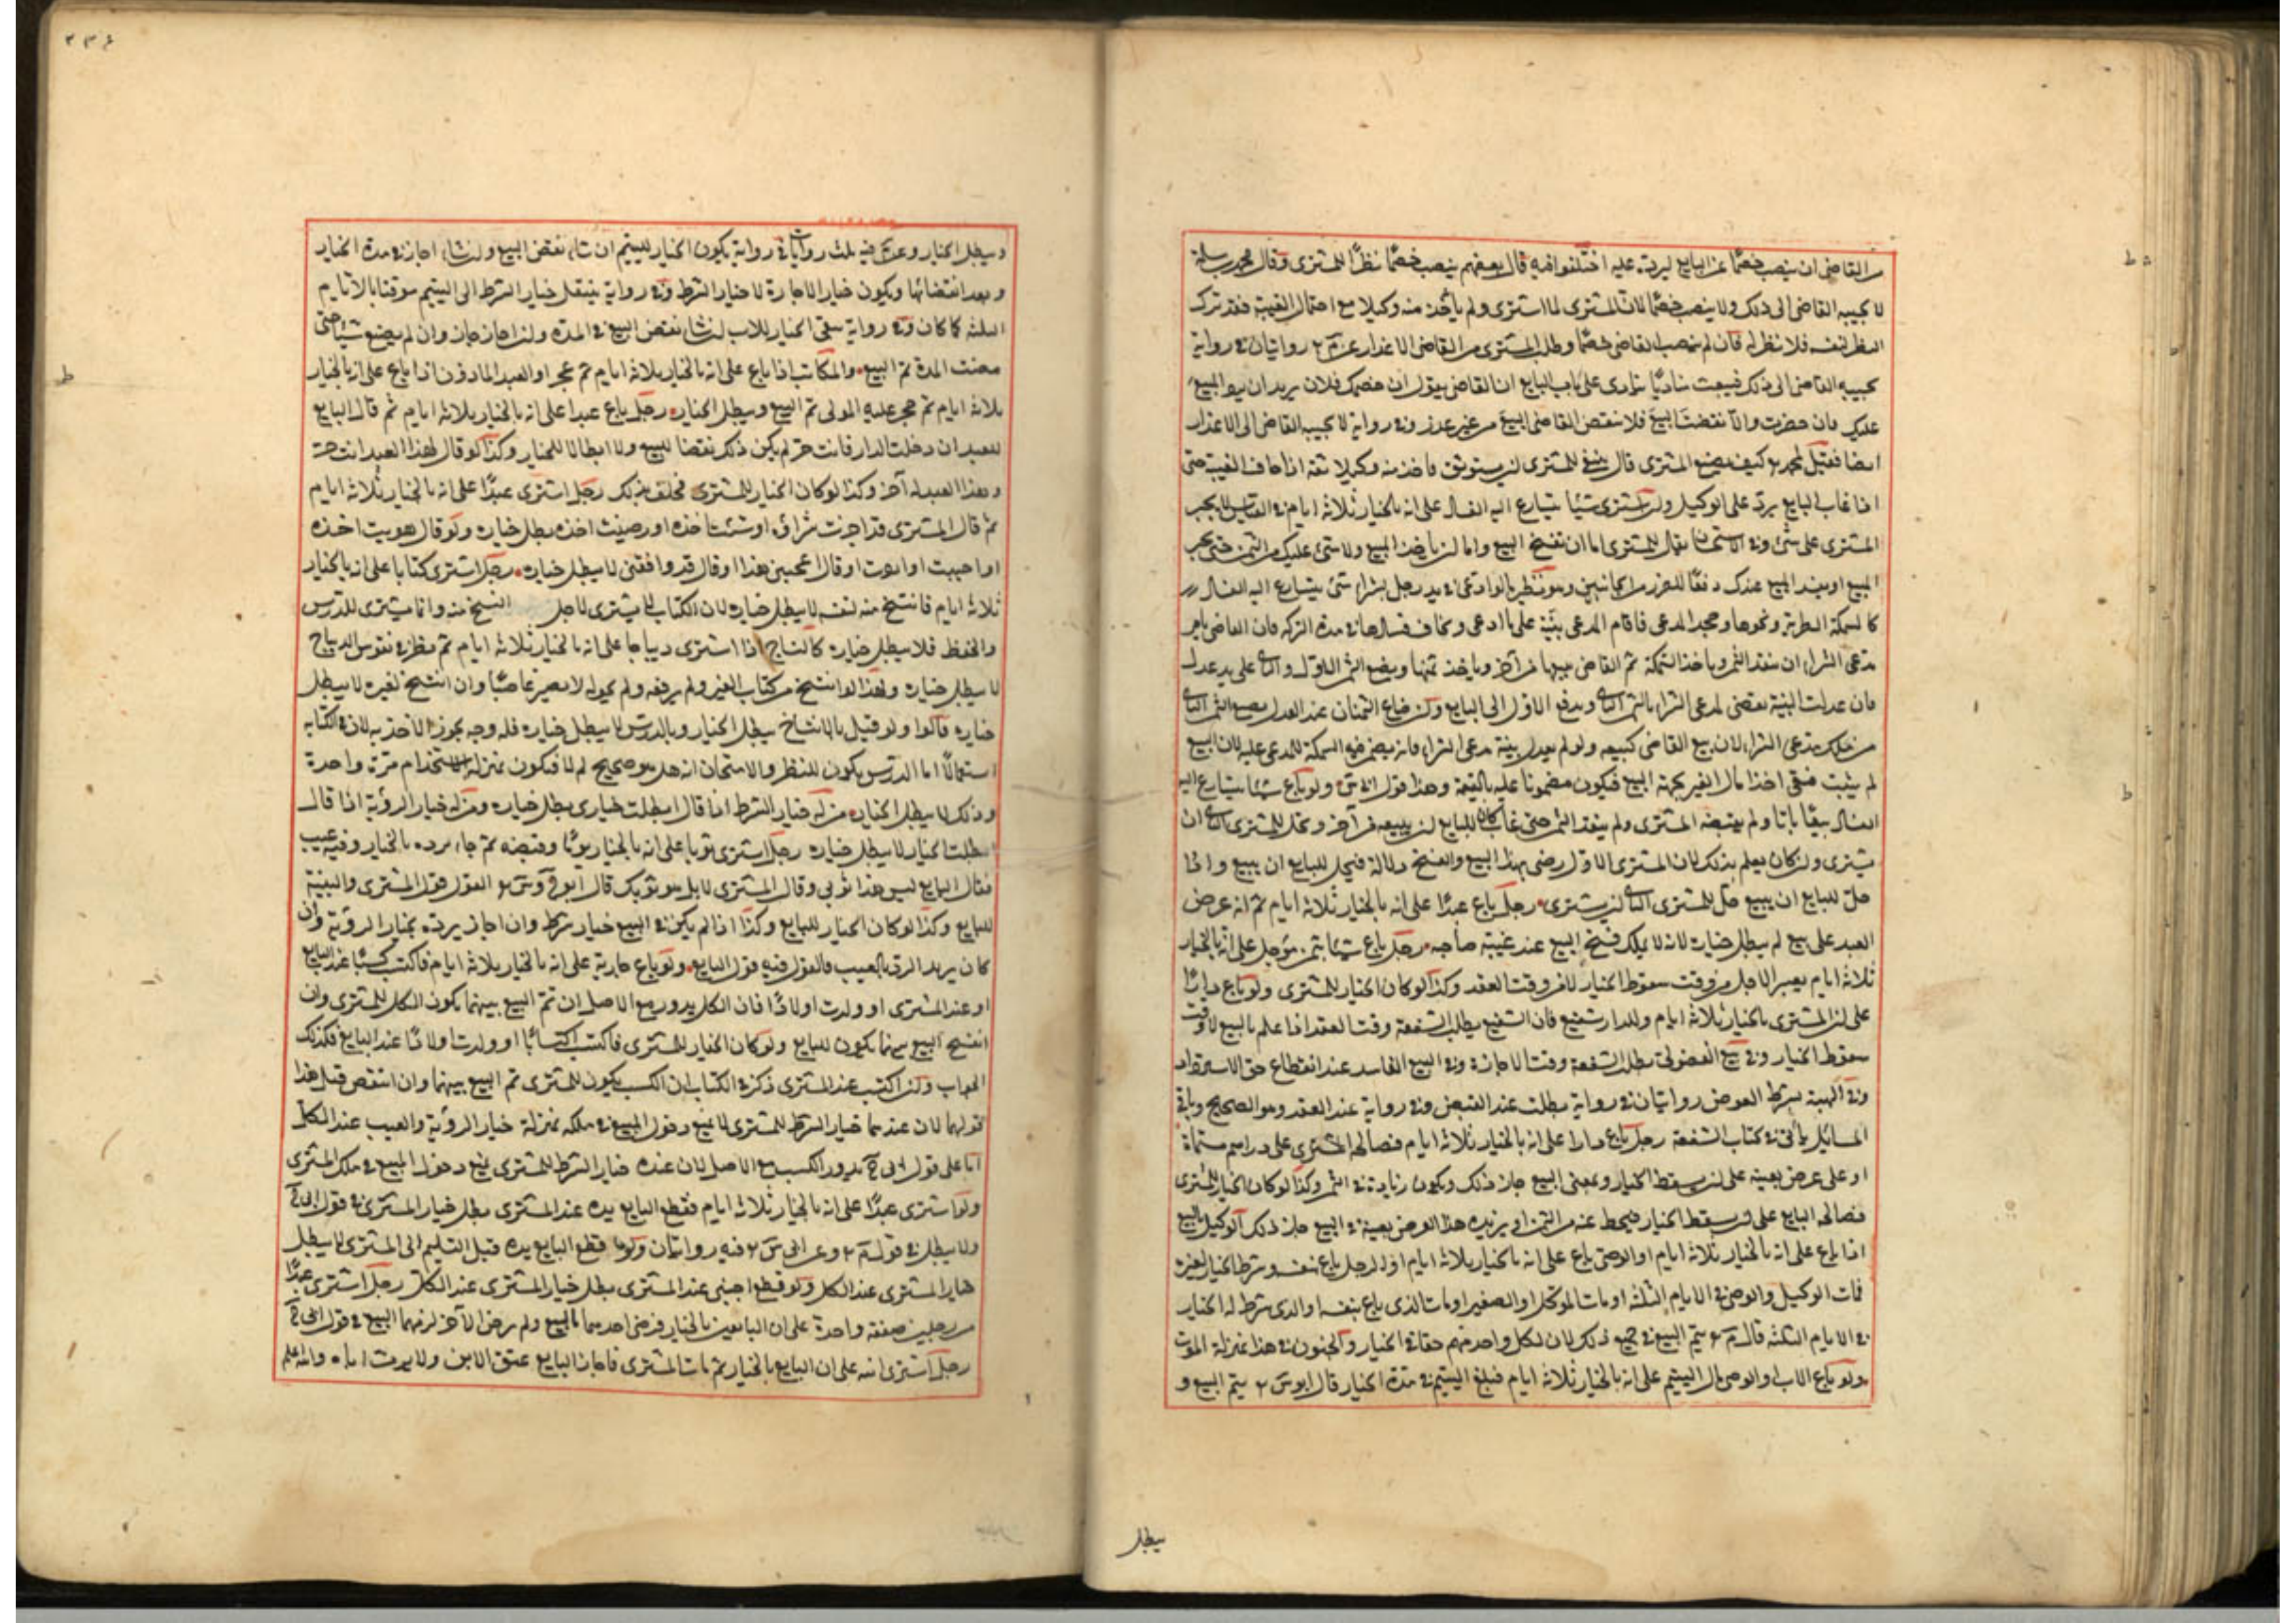 من القاضي ان ينصب خصما عن البايع ليرده عليه اختلفوا فيه قال بعضهم ينصب خصما نظرا للمشتري وقال محمد بن سلمة
لا يجيبه القاضي الى ذلك ولا ينصب خصما لان المشتري لما اشترى ولم يأخذ منه وكيلا مع احتمال الغيبة فقد ترك
النظر لنفسه فلا ينظر له فان لم ينصب القاضي خصما وطلب المشتري من القاضي الاعذار عن م ر روايتان في رواية
يجيبه القاضي الى ذلك فيبعث مناديا ينادي على باب البايع ان القاضي يقول ان خصمك فلان يريد ان يرد المبيع
عليك فان حضرت والا نقضت البيع فلا ينقض القاضي البيع من غير عذر وفي رواية لا يجيبه القاضي الى الاعذار
ايضا فقيل لمحمد ر كيف يصنع المشتري قال ينبغي للمشتري ان يستوثق فاخذ منه وكيلا ثقة اذا خاف الغيبة حتى
اذا غاب البايع يرد على الوكيل وان اشترى شيئا يتسارع اليه الفساد على انه بالخيار ثلاثة ايام في القياس لا يجبر
المشتري على شئ وفي الاستحسان يقال للمشتري اما ان تفسخ البيع واما ان تأخذ المبيع ولا شئ عليك من الثمن حتى يجيز
المبيع او يفسد المبيع عندك دفعا للضرر من الجانبين وهو نظير ما لو ادعى في يد رجل بشراء شئ يتسارع اليه الفساد
كالسمكة الطرية ونحوها وجحد المدعى فاقام المدعي بينة على ما ادعى ويخاف فسادها في مدة التزكية فان القاضي يامر
مدعي الشراء ان ينقد الثمن وياخذ السمكة ثم القاضي يبيعها من آخر وياخذ ثمنها ويضع الثمن الاول والثاني على يد عدل
فان عدلت البينة يقضي لمدعي الشراء بالثمن الثاني ويدفع الاول الى البايع وان ضاع الثمنان عند العدل يضيع الثمن الثاني
من مال مدعي الشراء لان بيع القاضي كبيعه ولو لم يعدل بينة مدعي الشراء فانه يضمن قيمة السمكة للمدعى عليه لان البيع
لم يثبت فبقي اخذا مال الغير بجهة البيع فيكون مضمونا عليه بالقيمة وهذا قول ولو باع شيئا يتسارع اليه
الفساد بيعا باتا ولم يقبضه المشتري ولم ينقد الثمن حتى غاب كان للبايع ان يبيعه من آخر ويحل للمشتري الثاني ان
يشتري وان كان يعلم بذلك لان المشتري الاول رضي بهذا البيع والفسخ دلالة فيحل للبايع ان يبيع واذا
حل للبايع ان يبيع حل للمشتري الثاني ان يشتري رجل باع عبدا على انه بالخيار ثلاثة ايام ثم انه عرض
العبد على بيع لم يبطل خياره لانه لا يملك فسخ البيع عند غيبة صاحبه رجل باع شيئا بثمن مؤجل على انه بالخيار
ثلاثة ايام يعتبر الاجل من وقت سقوط الخيار لا من وقت العقد وكذا لو كان الخيار للمشتري ولو باع دارا
على ان المشتري بالخيار ثلاثة ايام وللدار شفيع فان الشفيع يطلب الشفعة وقت العقد اذا علم بالبيع لا وقت
سقوط الخيار وفي بيع الفضولي يطلب الشفعة وقت الاجازة وفي البيع الفاسد عند انقطاع حق الاسترداد
وفي الهبة بشرط العوض روايتان في رواية يطلب عند القبض وفي رواية عند العقد وهو الصحيح وباقي
المسائل يأتي في كتاب الشفعة رجل باع دارا على انه بالخيار ثلاثة ايام فصالحه المشتري على دراهم مسماة
او على عرض بعينه على ان يسقط الخيار ويمضي البيع جاز ذلك ويكون زيادة في الثمن وكذا لو كان الخيار للمشتري
فصالحه البايع على ان يسقط الخيار فيحط عنه من الثمن او يزيده هذا العرض بعينه في البيع جاز ذلك الوكيل بالبيع
اذا باع على انه بالخيار ثلاثة ايام او الوصي باع على انه بالخيار ثلاثة ايام او الرجل باع بنفسه وشرط الخيار لغيره
فمات الوكيل والوصي في الايام الثلثة او مات الموكل او الصغير او مات الذي باع بنفسه او الذي شرط له الخيار
في الايام الثلثة قال م ر يتم البيع في جميع ذلك لان لكل واحد منهم حقا في الخيار والجنون في هذا بمنزلة الموت
ولو باع الاب او الوصي مال اليتيم على انه بالخيار ثلاثة ايام فبلغ اليتيم في مدة الخيار قال ابو س ر يتم البيع و
يبطل
٢٣٤
ويبطل الخيار وعن م فيه ثلث روايات في رواية يكون الخيار لليتيم ان شاء نقض البيع وان شاء اجاز في مدة الخيار
وبعد انقضائها ويكون خيار الاجازة لا خيار الشرط وفي رواية ينتقل خيار الشرط الى اليتيم موقتا بالايام
الثلثة كما كان وفي رواية يبقى الخيار للاب ان شاء نقض البيع في المدة وان اجاز جاز وان لم يصنع شيئا حتى
مضت المدة تم البيع والمكاتب اذا باع على انه بالخيار ثلاثة ايام ثم عجز او العبد الماذون اذا باع على انه بالخيار
ثلاثة ايام ثم حجر عليه المولى تم البيع ويبطل الخيار رجل باع عبدا على انه بالخيار ثلاثة ايام ثم قال البايع
للعبد ان دخلت الدار فانت حر لم يكن ذلك نقضا للبيع ولا ابطالا للخيار وكذا لو قال لهذا العبد انت حر
وهذا العبد لآخر وكذا لو كان الخيار للمشتري فحلف بذلك رجل اشترى عبدا على انه بالخيار ثلاثة ايام
ثم قال المشتري قد اجزت شراؤه او شئت اخذه او رضيت اخذه يبطل خياره ولو قال هويت اخذه
او احببت او اردت او قال اعجبني هذا او قال قد وافقني لا يبطل خياره رجل اشترى كتابا على انه بالخيار
ثلاثة ايام فانتسخ منه لنفسه لا يبطل خياره لان الكتاب لا يشترى لاجل النسخ منه وانما يشترى للدرس
والحفظ فلا يبطل خياره كالنساج اذا اشترى ديباجا على انه بالخيار ثلاثة ايام ثم نظر في نقوش الديباج
لا يبطل خياره ولهذا لو انتسخ من كتاب الغير ولم يرفعه ولم يحوله لا يصير غاصبا وان انتسخ لغيره لا يبطل
خياره قالوا ولو قيل بالانتساخ يبطل الخيار وبالدرس لا يبطل خياره فله وجه يجوز الاخذ به لان في الكتابة
استعمالا اما الدرس يكون للنظر والامتحان انه هل هو صحيح ام لا فيكون بمنزلة الاستخدام مرة واحدة
وذلك لا يبطل الخيار من له خيار الشرط اذا قال ابطلت خياري يبطل خياره ومن له خيار الرؤية اذا قال
ابطلت الخيار لا يبطل خياره رجل اشترى ثوبا على انه بالخيار يوما وقبضه ثم جاء يرده بالخيار وفيه عيب
فقال البايع ليس هذا ثوبي وقال المشتري لا بل هو ثوبك قال القول قول المشتري والبينة
للبايع وكذا لو كان الخيار للبايع وكذا اذا لم يكن في البيع خيار شرط وان اجاز يرده بخيار الرؤية وان
كان يريد الرد بالعيب فالقول فيه قول البايع ولو باع جارية على انه بالخيار ثلاثة ايام فاكتسبت كسبا عند البايع
او عند المشتري او ولدت اولادا فان الكل يدور مع الاصل ان تم البيع بينهما يكون الكل للمشتري وان
انفسخ البيع بينهما يكون للبايع ولو كان الخيار للمشتري فاكتسب اكتسابا او ولدت اولادا عند البايع فكذلك
الجواب وان اكتسب عند المشتري ذكر في الكتاب ان الكسب يكون للمشتري تم البيع بينهما وان انتقض قيل هذا
قولهما لان عندهما خيار الشرط للمشتري لا يمنع دخول المبيع في ملكه بمنزلة خيار الرؤية والعيب عند الكل
اما على قول ابي ح يدور الكسب مع الاصل لان عنده خيار الشرط للمشتري يمنع دخول المبيع في ملك المشتري
ولو اشترى عبدا على انه بالخيار ثلاثة ايام فقطع البايع يده عند المشتري يبطل خيار المشتري في قول ابي ح
ولا يبطل في قول م ر وعن ابي س ر فيه روايتان ولو قطع البايع يده قبل التسليم الى المشتري لا يبطل
خيار المشتري عند الكل ولو قطع اجنبي عند المشتري يبطل خيار المشتري عند الكل رجل اشترى عبدا
من رجلين صفقة واحدة على ان البايعين بالخيار فرضي احدهما بالبيع ولم يرض الآخر لزمهما البيع في قول ابي ح
رجل اشترى ابنه على ان البايع بالخيار ثم مات المشتري فاجاز البايع عتق الابن ولا يرث اباه والله اعلم